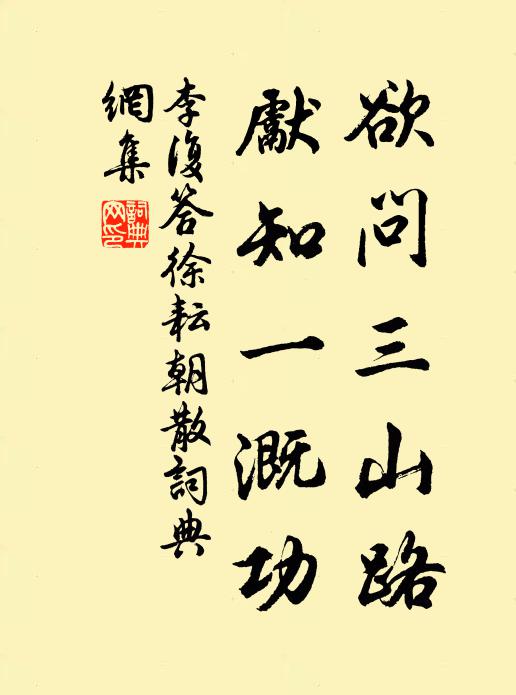 欲問三山路
獻知一溉功
李復答徐耘朝散詞典
網集
詞典網印